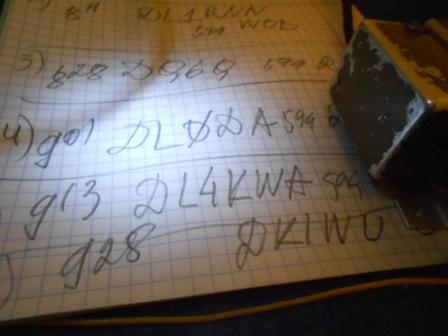 811 DL1RNN
599 WOB
3) 828 DQ6Q 599
4) 901 DLØDA 599
913 DL4KWA 599
928 DK1WU